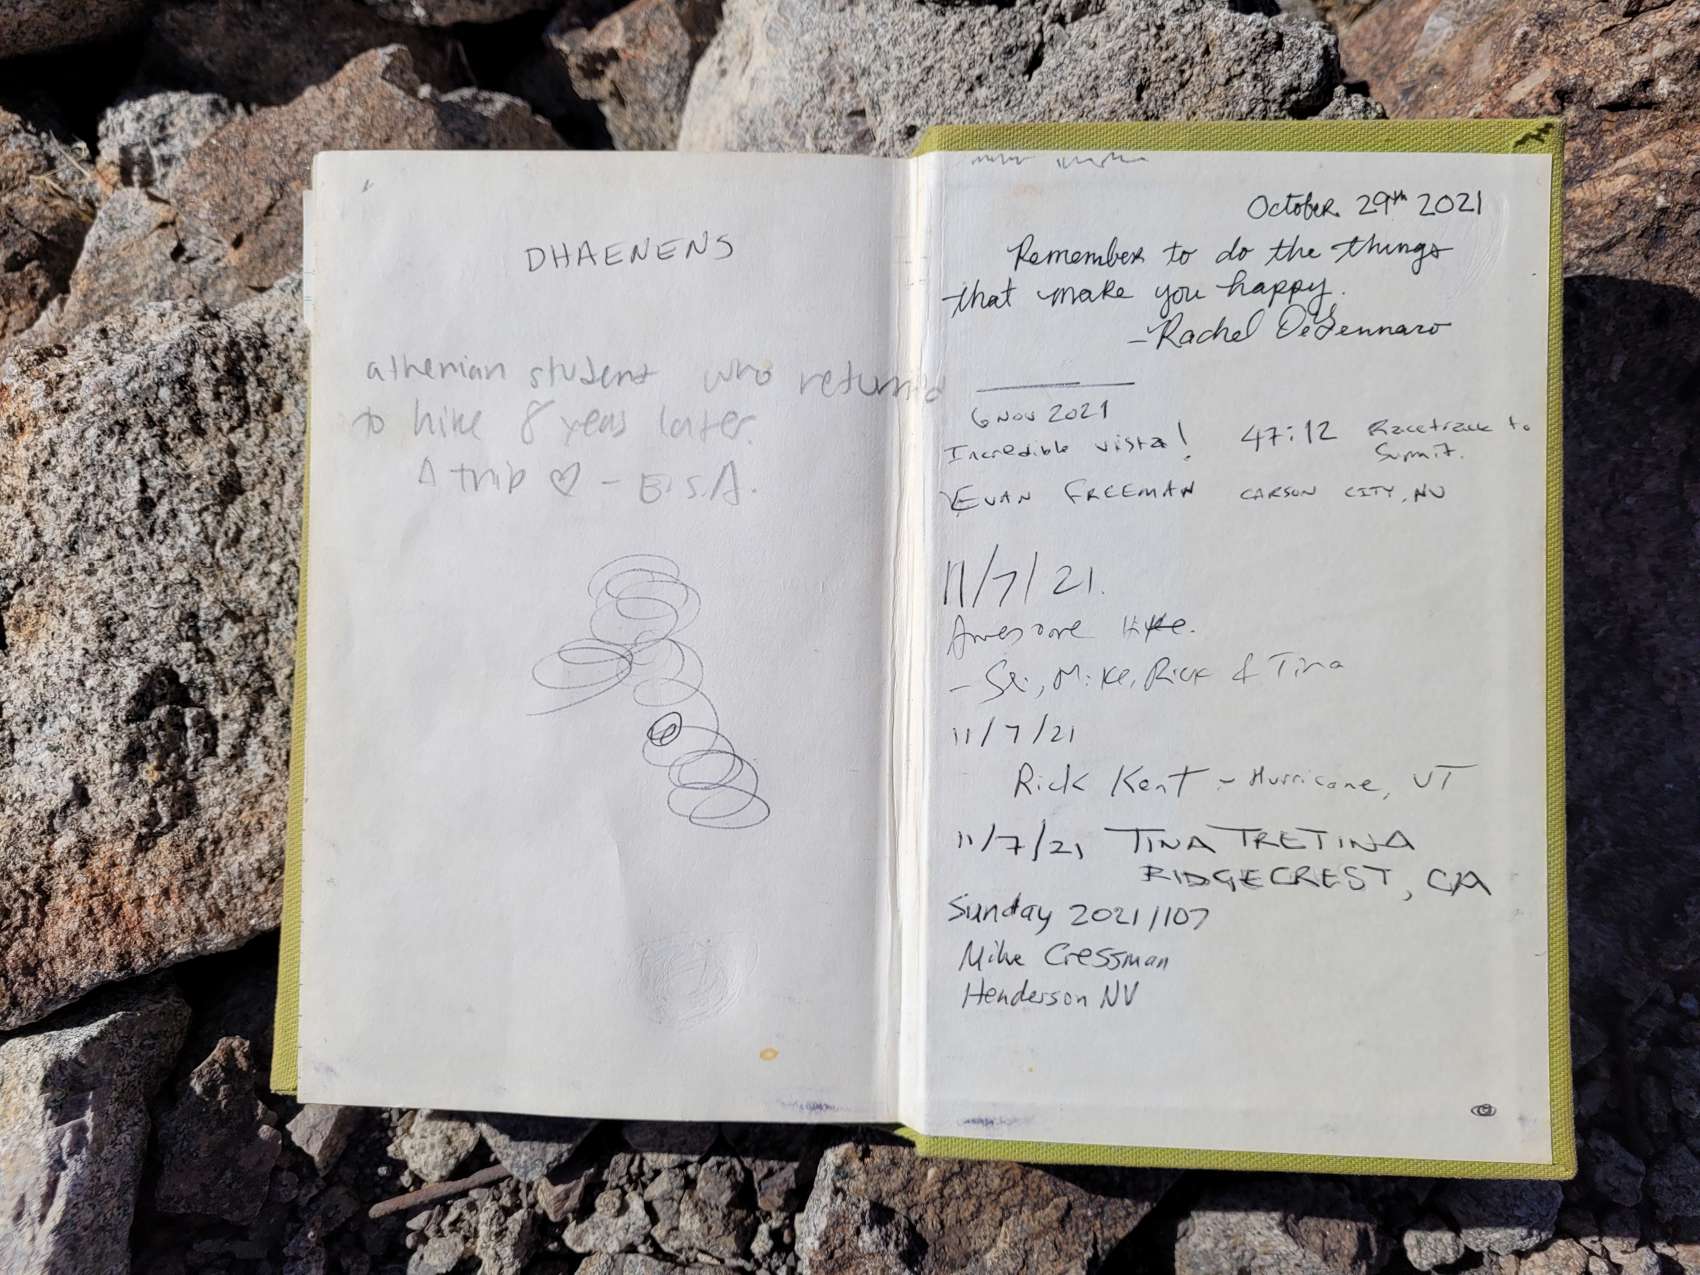 DHAENENS
athenian student who returned
to hike 8 yeas later.
A trip ♡ - E.S.A.
October 29th 2021
Remember to do the things
that make you happy.
- Rachel DeGennaro
6 NOV 2021
Incredible vista! 47:12 Racetrack to
Summit.
EVAN FREEMAN CARSON CITY, NV
11/7/21.
Awesome Hike.
Mike, Rick & Tina
11/7/21
Rick Kent - Hurricane, UT
11/7/21 TINA TRETINA
RIDGECREST, CA
Sunday 20211107
Mike Cressman
Henderson NV